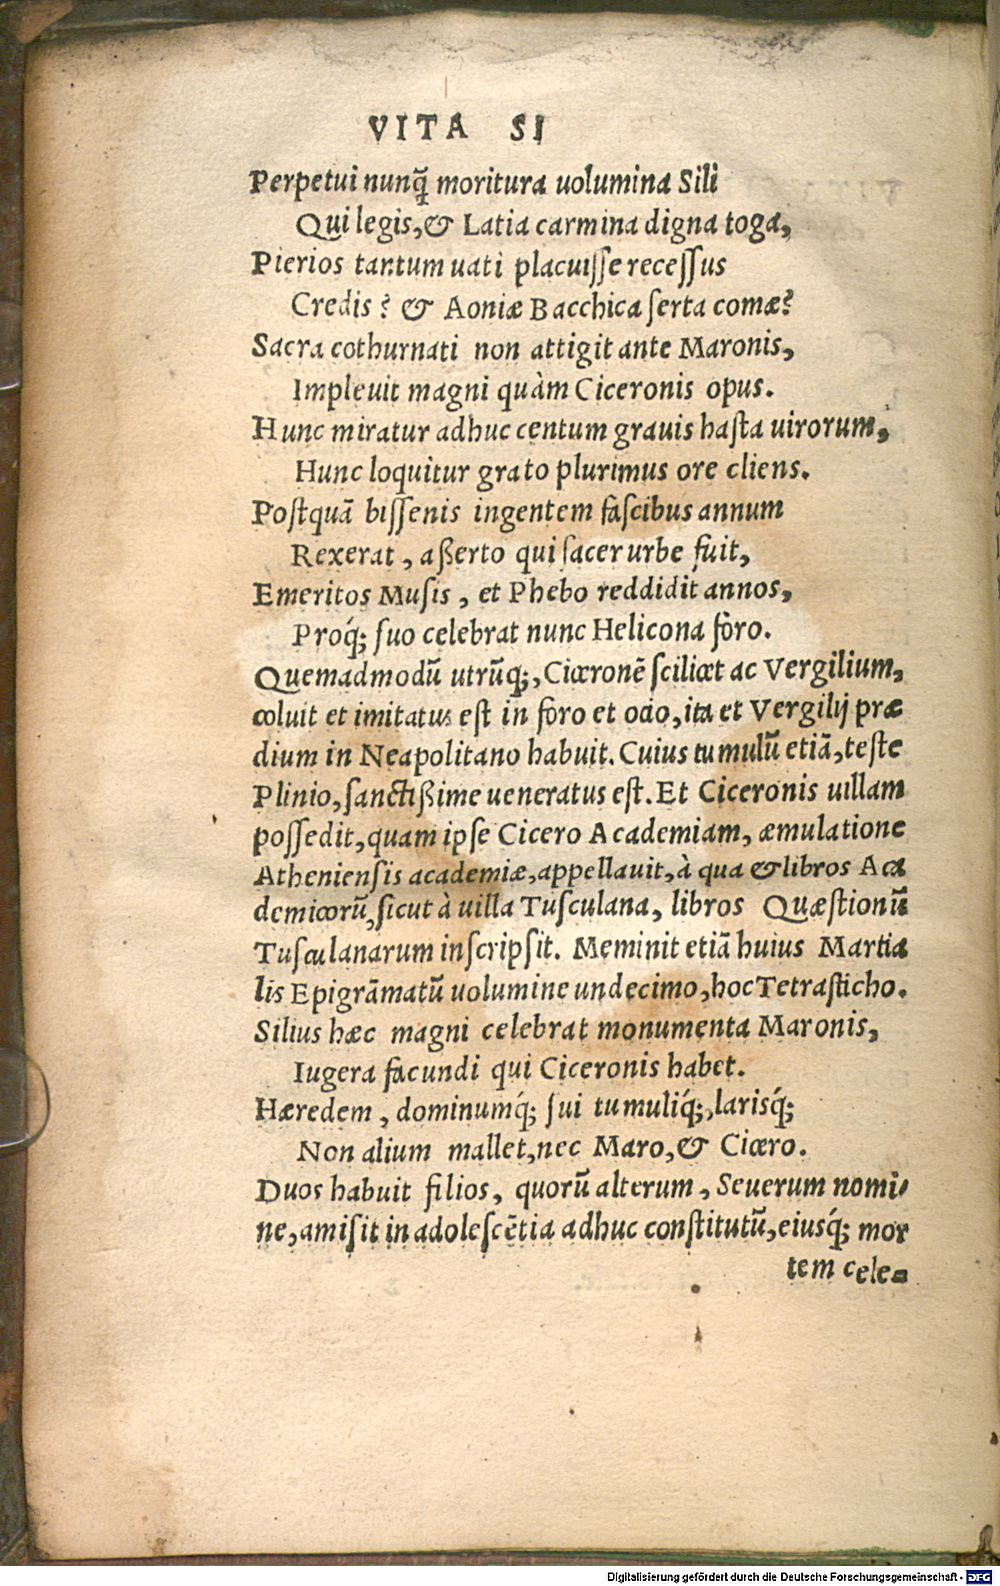 VITA SI
Perpetui nunq̃ moritura uolumina Sili
Qui legis, & Latia carmina digna toga,
Pierios tantum uati placuisse recessus
Credis? & Aoniæ Bacchica serta comæ?
Sacra cothurnati non attigit ante Maronis,
Impleuit magni quàm Ciceronis opus.
Hunc miratur adhuc centum grauis hasta uirorum,
Hunc loquitur grato plurimus ore cliens.
Postquā bissenis ingentem fascibus annum
Rexerat, aßerto qui sacer urbe fuit,
Emeritos Musis, et Phebo reddidit annos,
Proq́; suo celebrat nunc Helicona foro.
Quemadmodū utrūq;, Ciceronē scilicet ac Vergilium,
coluit et imitatus est in foro et ocio, ita et Vergilij præ
dium in Neapolitano habuit. Cuius tumulū etiā, teste
Plinio, sanctißime ueneratus est. Et Ciceronis uillam
possedit, quam ipse Cicero Academiam, æmulatione
Atheniensis academiæ, appellauit, à qua & libros Aca
demicorū, sicut à uilla Tusculana, libros Quæstionū
Tusculanarum inscripsit. Meminit etiā huius Martia
lis Epigrāmatū uolumine undecimo, hoc Tetrasticho.
Silius hæc magni celebrat monumenta Maronis,
Iugera facundi qui Ciceronis habet.
Hæredem, dominumq́; sui tumuliq́;, larisq́;
Non alium mallet, nec Maro, & Cicero.
Duos habuit filios, quorū alterum, Seuerum nomi-
ne, amisit in adolescētia adhuc constitutū, eiusq́; mor
tem cele-
Digitalisierung gefördert durch die Deutsche Forschungsgemeinschaft - DFG